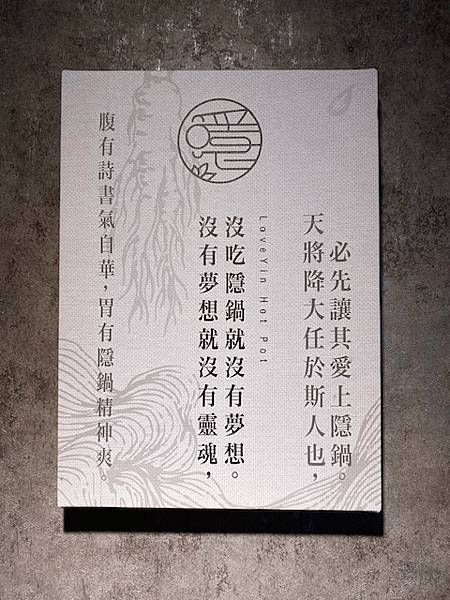 腹有詩書氣自華，胃有隱鍋精神爽。
沒有夢想就沒有靈魂，
沒吃隱鍋就沒有夢想。
LoveYin Hot Pot
天將降大任於斯人也，
必先讓其愛上隱鍋。